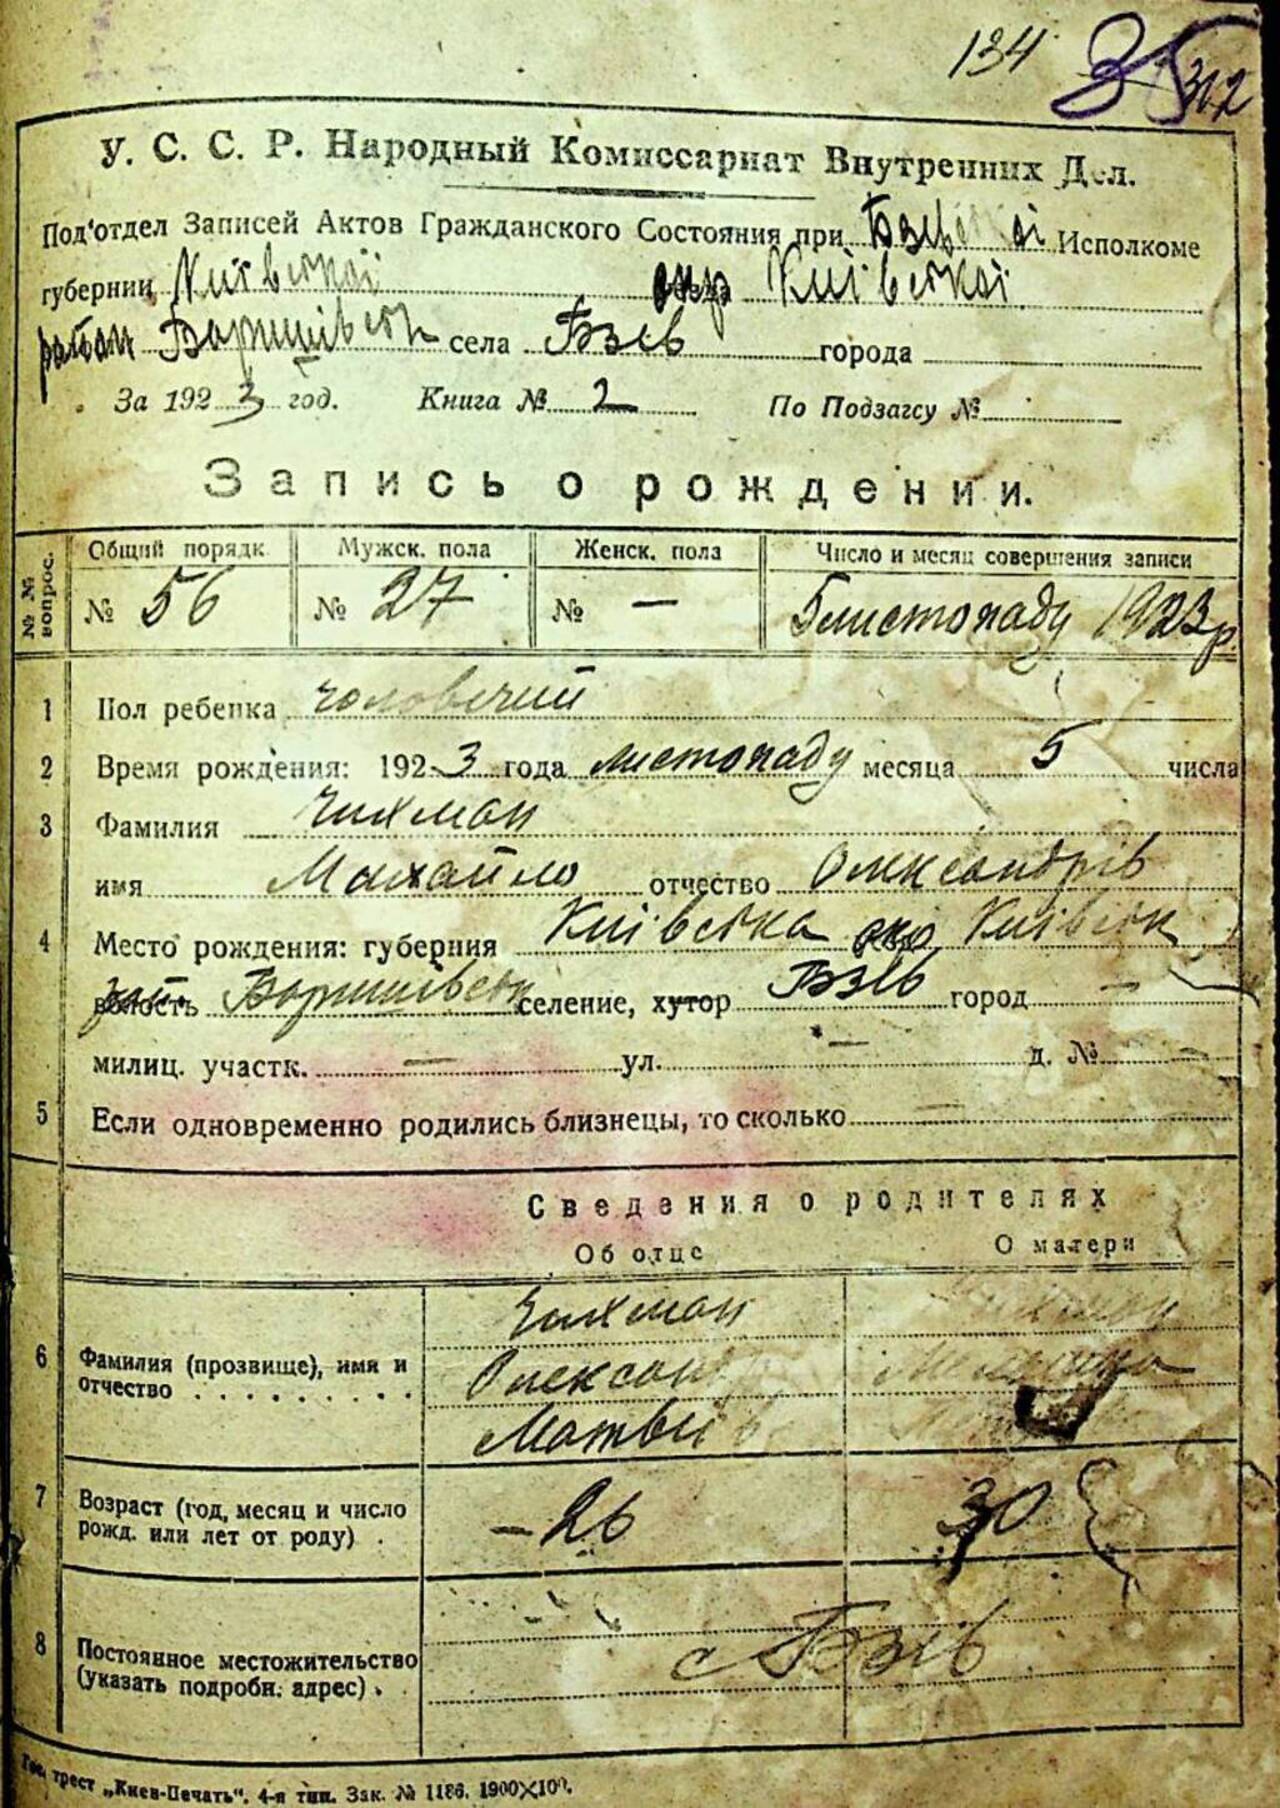 134 35 312
У. С. С. Р. Народный Комиссариат Внутренних Дел.
Под'отдел Записей Актов Гражданского Состояния при Исполкоме
губернии Київської окр Київської
район Боришівськ села Бзів города
За 1923 год. Книга № 2 По Подзагсу №
Запись о рождении.
№ № вопрос. Общий порядк. Мужск. пола Женск. пола Число и месяц совершения записи
№ 56 № 27 № — 5 листопаду 1923 р.
1 Пол ребенка чоловечий
2 Время рождения: 1923 года листопаду месяца 5 числа
3 Фамилия Чихман
имя Михайло отчество Олександрів
4 Место рождения: губерния Київська окр Київськ
волость Боришівськ селение, хутор Бзів город —
милиц. участк. — ул. — д. № —
5 Если одновременно родились близнецы, то сколько —
Сведения о родителях
Об отце О матери
Чихман Чихман
6 Фамилия (прозвище), имя и отчество Олексан
Матвіїв
7 Возраст (год, месяц и число рожд. или лет от роду) . — 26 30
8 Постоянное местожительство (указать подробн. адрес) . с Бзів
трест „Киев-Печать". 4-я тип. Зак. № 1186. 1900×100.